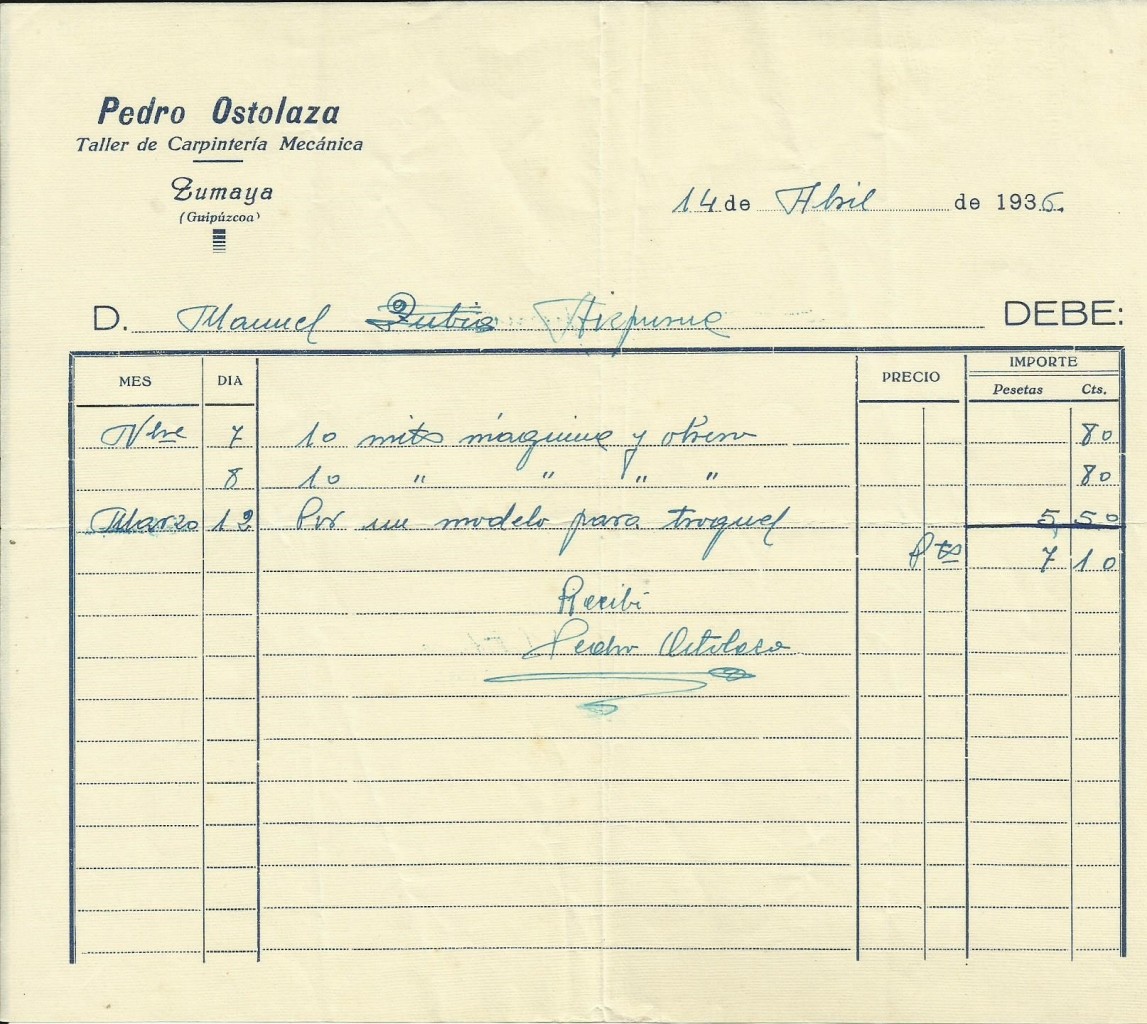 Pedro Ostolaza
Taller de Carpintería Mecánica
Zumaya
(Guipúzcoa)
14 de Abril de 1936.
D. Manuel DEBE:
MES DIA PRECIO IMPORTE
Pesetas Cts.
Nbre 7 10 mits máquina y obrero 80
8 10 " " " " 80
Marzo 12 Por un modelo para troquel 5,50
Pts 7 10
Recibi
Pedro Ostolaza